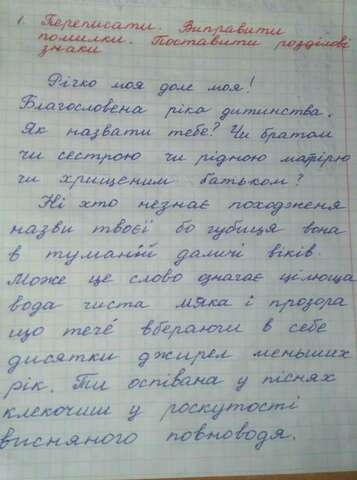 1. Переписати. Виправити
помилки. Поставити розділові
знаки
Річко моя доле моя!
Благословена ріка дитинства.
Як назвати тебе? Чи братом
чи сестрою чи рідною матірю
чи хрищеним батьком?
Ні хто незнає походженя
назви твоєї бо губиця вона
в туманій даличі віків.
Може це слово означає цілюща
вода чиста мяка і прозора
що тече вбераючи в себе
дисятки джирел меньших
рік. Ти оспівана у піснях
клекочиш у роскутості
висняного повноводя.